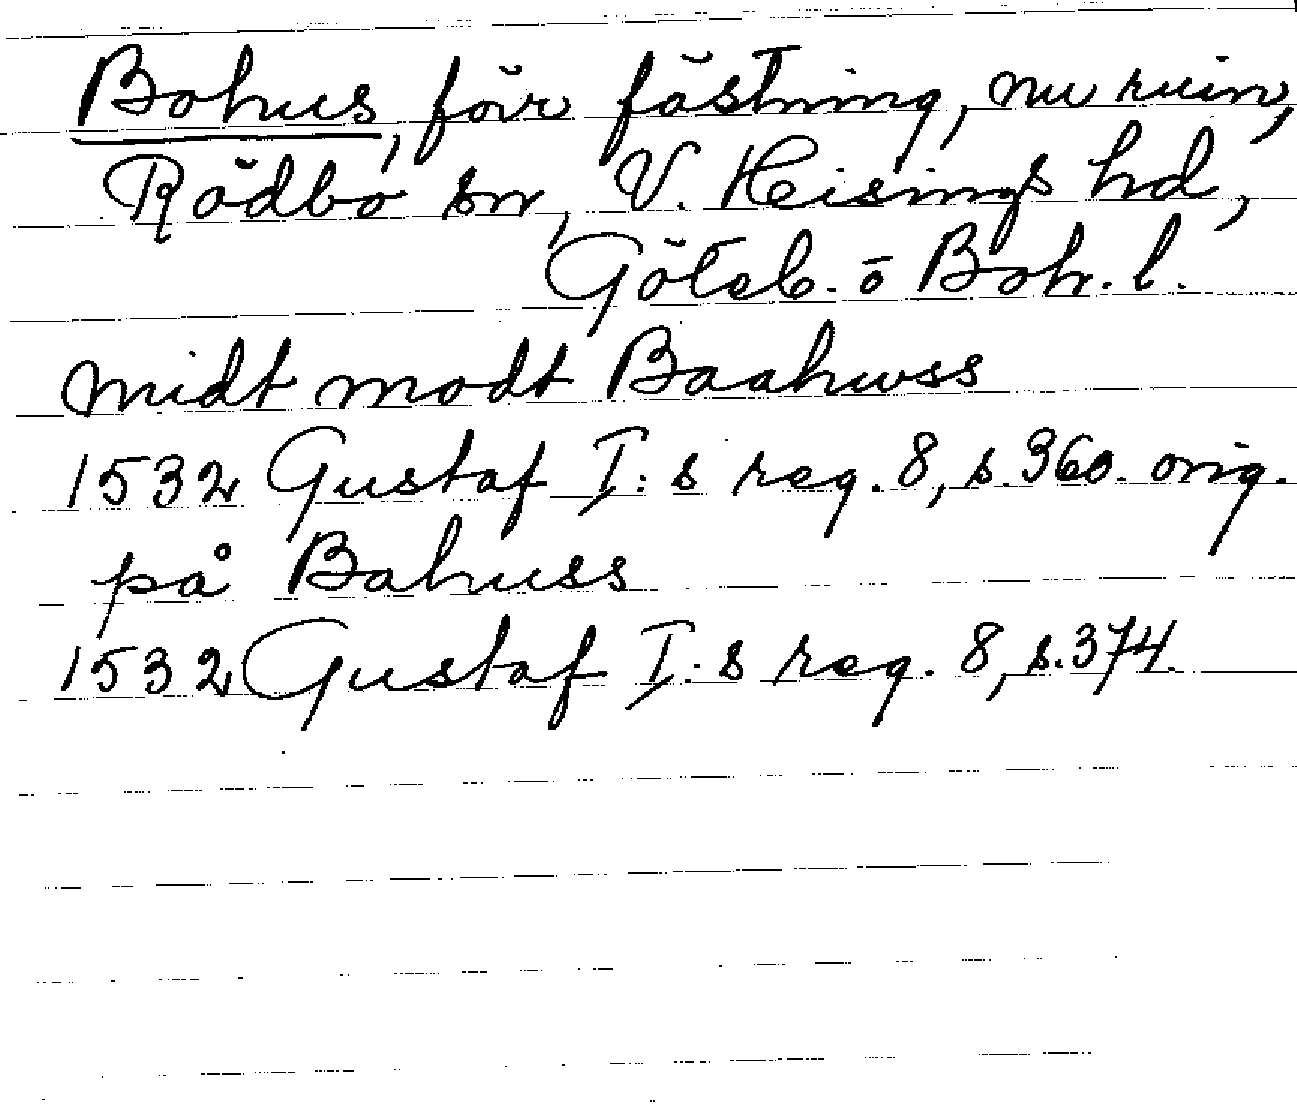 Bohus, förr fästning, nu ruin,
Rödbo sn, V. Hisings hd,
Göteb. o Boh. l.
midt modt Baahwss
1532 Gustaf I:s reg. 8, s. 360. orig.
på Bahuss
1532 Gustaf I:s reg. 8, s. 374.